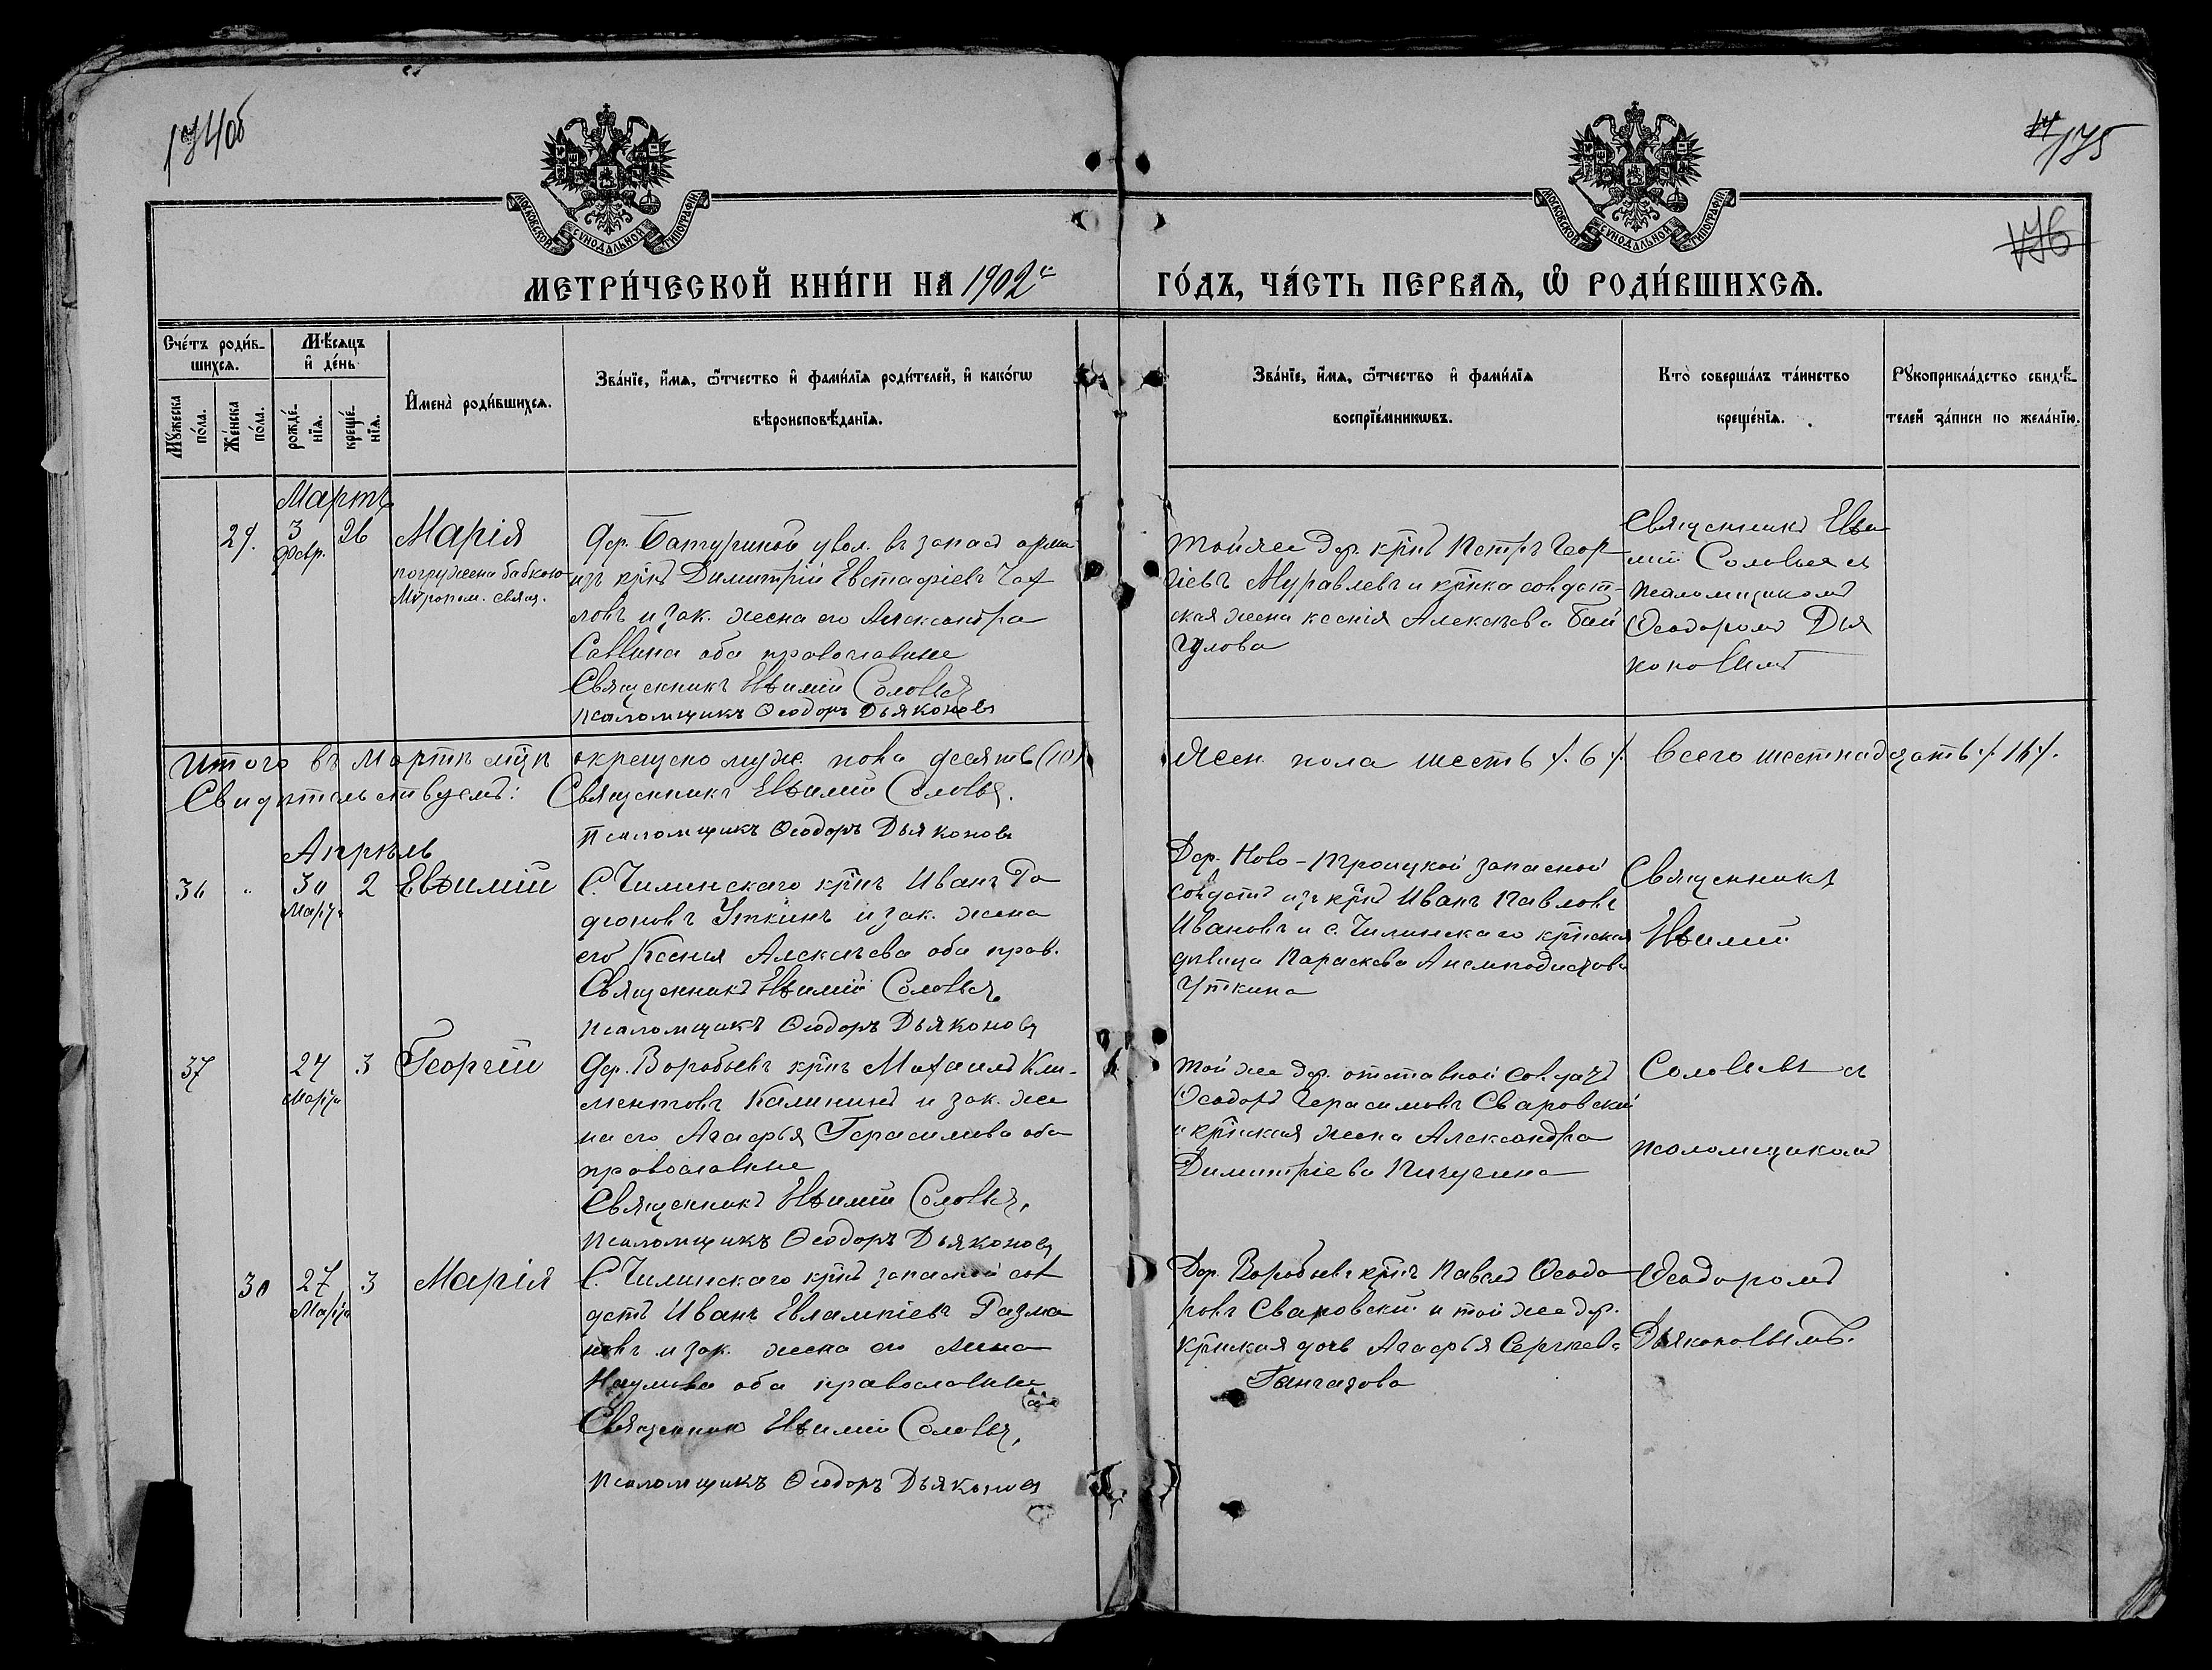 174об
175
176
МОСКОВСКОЙ СУНОДАЛЬНОЙ ТИПОГРАФІИ
МОСКОВСКОЙ СУНОДАЛЬНОЙ ТИПОГРАФІИ
МЕТРИ́ЧЕСКОЙ КНИ́ГИ НА 1902й ГО́ДЪ, ЧА́СТЬ ПЕРВАѦ, Ѽ РОДИ́ВШИХСѦ.
Сче́тъ роди́в-
шихсѧ.
Мꙋжеска по́ла.
Же́нска по́ла.
Мѣ́сѧцъ
и҆ де́нь
рожде́-нїѧ.
креще́-нїѧ.
И҆мена̀ роди́вшихсѧ.
Зва́нїе, и҆́мѧ, ѻ҆́тчество и҆ фами́лїѧ роди́телей, и҆ како́гѡ
вѣроисповѣ́данїѧ.
Зва́нїе, и҆́мѧ, ѻ҆́тчество и҆ фами́лїѧ
воспрїе́мникѡвъ.
Кто̀ соверша́лъ та́инство
креще́нїѧ.
Рꙋкоприкла́дство свидѣ́-
телей за́писи по жела́нїю.
Мартъ
29. 3 26 Марія
Февр.
погружена бабкою
Мѵропом. свящ.
Дер. Батуриной увол. въ запас арми
изъ крнъ Димитрій Евстафіевъ Чах
ловъ и зак. жена его Александра
Саввина оба православные
Священникъ Евѳимій Соловьевъ
Псаломщикъ Ѳеодоръ Дьяконовъ
той же дер. крнъ Петръ Геор-
гіевъ Муравлевъ и крнка солдат-
ская жена Ксенія Алексѣева Бай
гулова
Священникъ Евѳи
мій Соловьевъ съ
псаломщикомъ
Ѳеодоромъ Дья
коновымъ
Итого въ Мартѣ мцѣ окрещено муж. пола десять (10) Жен. пола шесть /. 6 /. всего шестнадцать /. 16 /.
Свидѣтельствуемъ: Священникъ Евѳимій Соловьевъ.
Псаломщикъ Ѳеодоръ Дьяконовъ
Апрѣль
36 " 30 2 Евѳимій
Марта
С. Чилинскаго крнъ Иванъ Ро
діоновъ Уткинъ и зак. жена
его Ксенія Алексѣева оба прав.
Священникъ Евѳимій Соловьевъ
Псаломщикъ Ѳеодоръ Дьяконовъ
Дер. Ново-Троицкой запасной
солдатъ изъ крнъ Иванъ Павловъ
Ивановъ и с. Чилинскаго крнская
дѣвица Параскева Анемподистова
Уткина
Священникъ
Евѳимій
37 24 3 Георгій
Марта
Дер. Воробьевъ крнъ Михаилъ Кли-
ментовъ Калининъ и зак. же
на его Агафья Герасимова оба
православные
Священникъ Евѳимій Соловьевъ,
Псаломщикъ Ѳеодоръ Дьяконовъ
той же дер. отставной солдатъ
Ѳеодоръ Герасимовъ Сваровскій
и крнская жена Александра
Димитріева Пичугина
Соловьевъ съ
псаломщикомъ
30 27 3 Марія
Марта
С. Чилинскаго крнъ запасной сол
датъ Иванъ Евлампіевъ Разма
новъ и зак. жена его Анна
Наумова оба православные
Священникъ Евѳимій Соловьевъ,
Псаломщикъ Ѳеодоръ Дьяконовъ
Дер. Воробьевъ крнъ Павелъ Ѳеодо
ровъ Сваровскій и той же дер.
крнская дочь Агафья Сергѣева
Ѳеодоромъ
Дьяконовымъ.